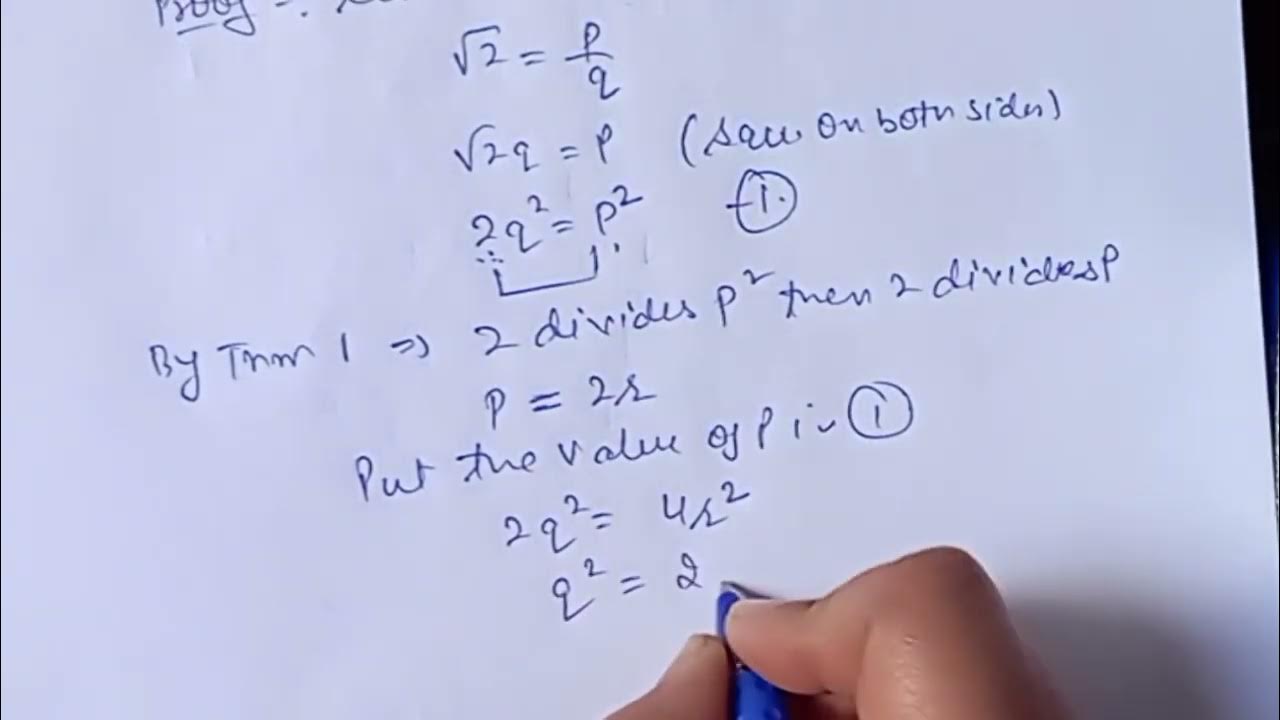 Proof -:
√2 = p/q
√2q = p (sqU on both sides)
2q² = p² - ①.
By Thm 1 => 2 divides p² then 2 divides p
p = 2r
Put the value of p in ①
2q² = 4r²
q² = 2